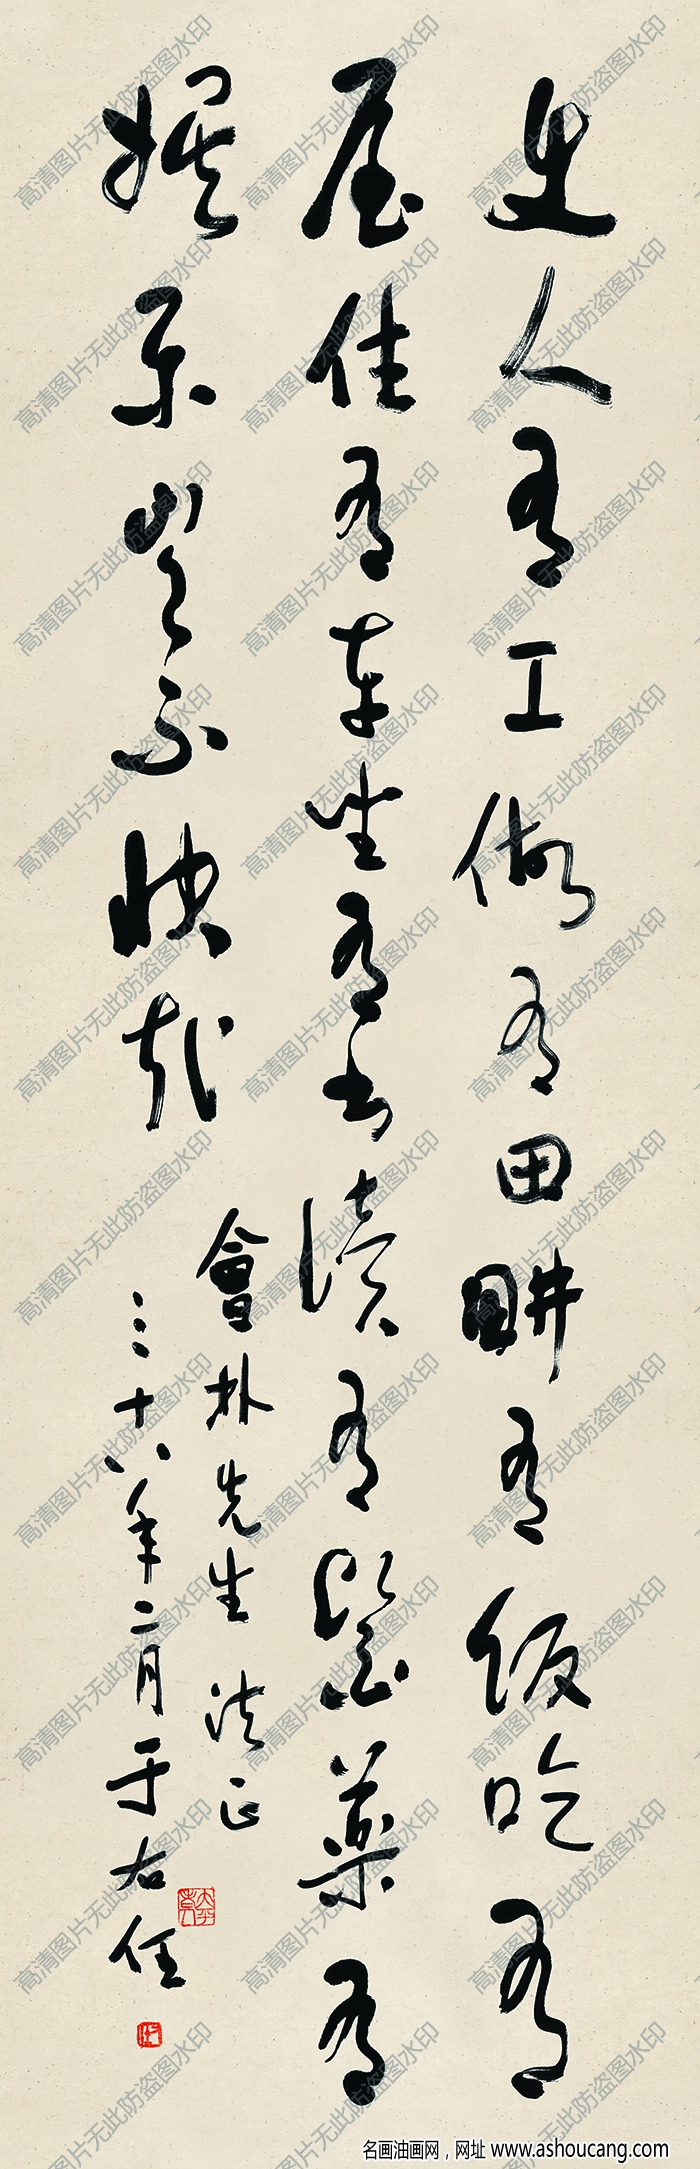 人有工做有田畊有飯吃有
屋住有車坐有書讀有醫藥有
娛樂豈不快哉
會朴先生 法正
三十八年二月于右任
高清图片无此防盗图水印
名画油画网，网址 www.ashoucang.com